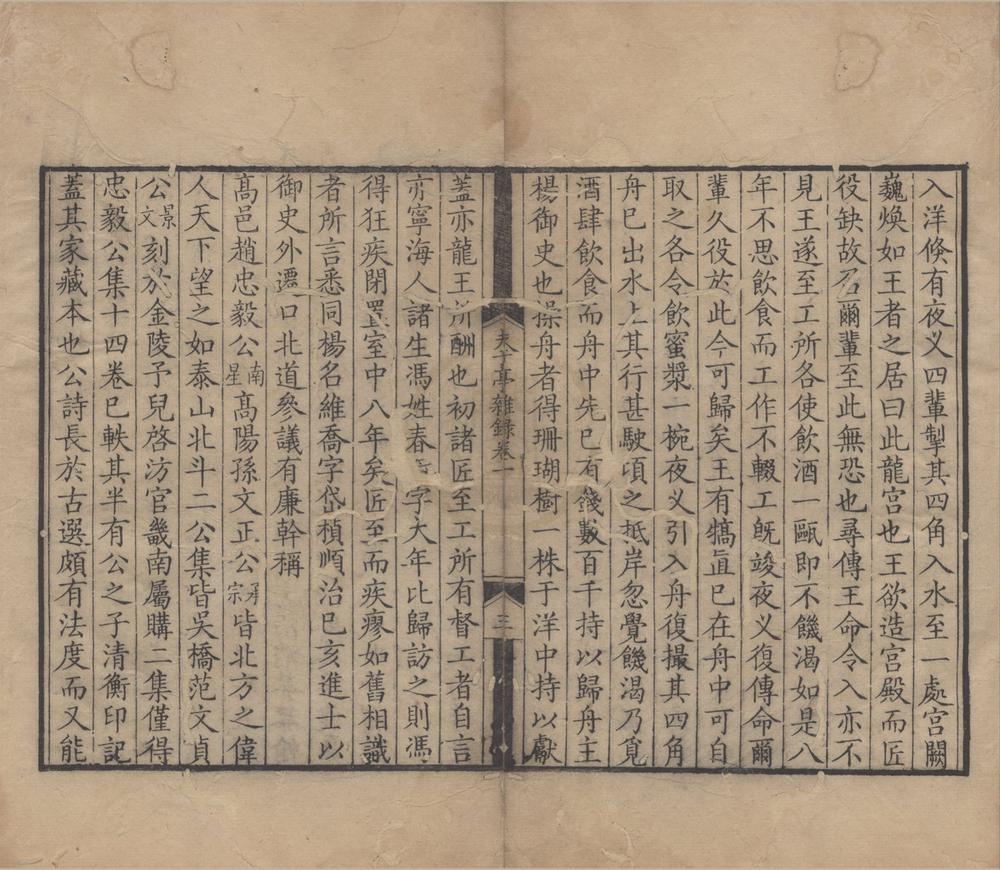 入洋倏有夜乂四輩掣其四角入水至一處宫闕
巍煥如王者之居曰此龍宫也王欲造宫殿而匠
役缺故召爾輩至此無恐也尋傳王命令入亦不
見王遂至工所各使飲酒一甌即不饑渴如是八
年不思飲食而工作不輟工旣竣夜乂復傳命爾
輩久役於此今可歸矣王有犒直已在舟中可自
取之各令飲蜜漿一椀夜乂引入舟復撮其四角
舟已出水上其行甚駛頃之抵岸忽覺饑渴乃覓
酒肆飲食而舟中先已有錢數百千持以歸舟主
楊御史也操舟者得珊瑚樹一株于洋中持以獻
夫于亭雜錄卷一
三
蓋亦龍王所酬也初諸匠至工所有督工者自言
亦寧海人諸生馮姓春字大年比歸訪之則馮
得狂疾閉置室中八年矣匠至而疾瘳如舊相識
者所言悉同楊名維喬字岱楨順治己亥進士以
御史外遷口北道參議有廉幹稱
高邑趙忠毅公南星高陽孫文正公承宗皆北方之偉
人天下望之如泰山北斗二公集皆吳橋范文貞
公景文刻於金陵予兒啓汸官畿南屬購二集僅得
忠毅公集十四卷已軼其半有公之子清衡印記
蓋其家藏本也公詩長於古選頗有法度而又能